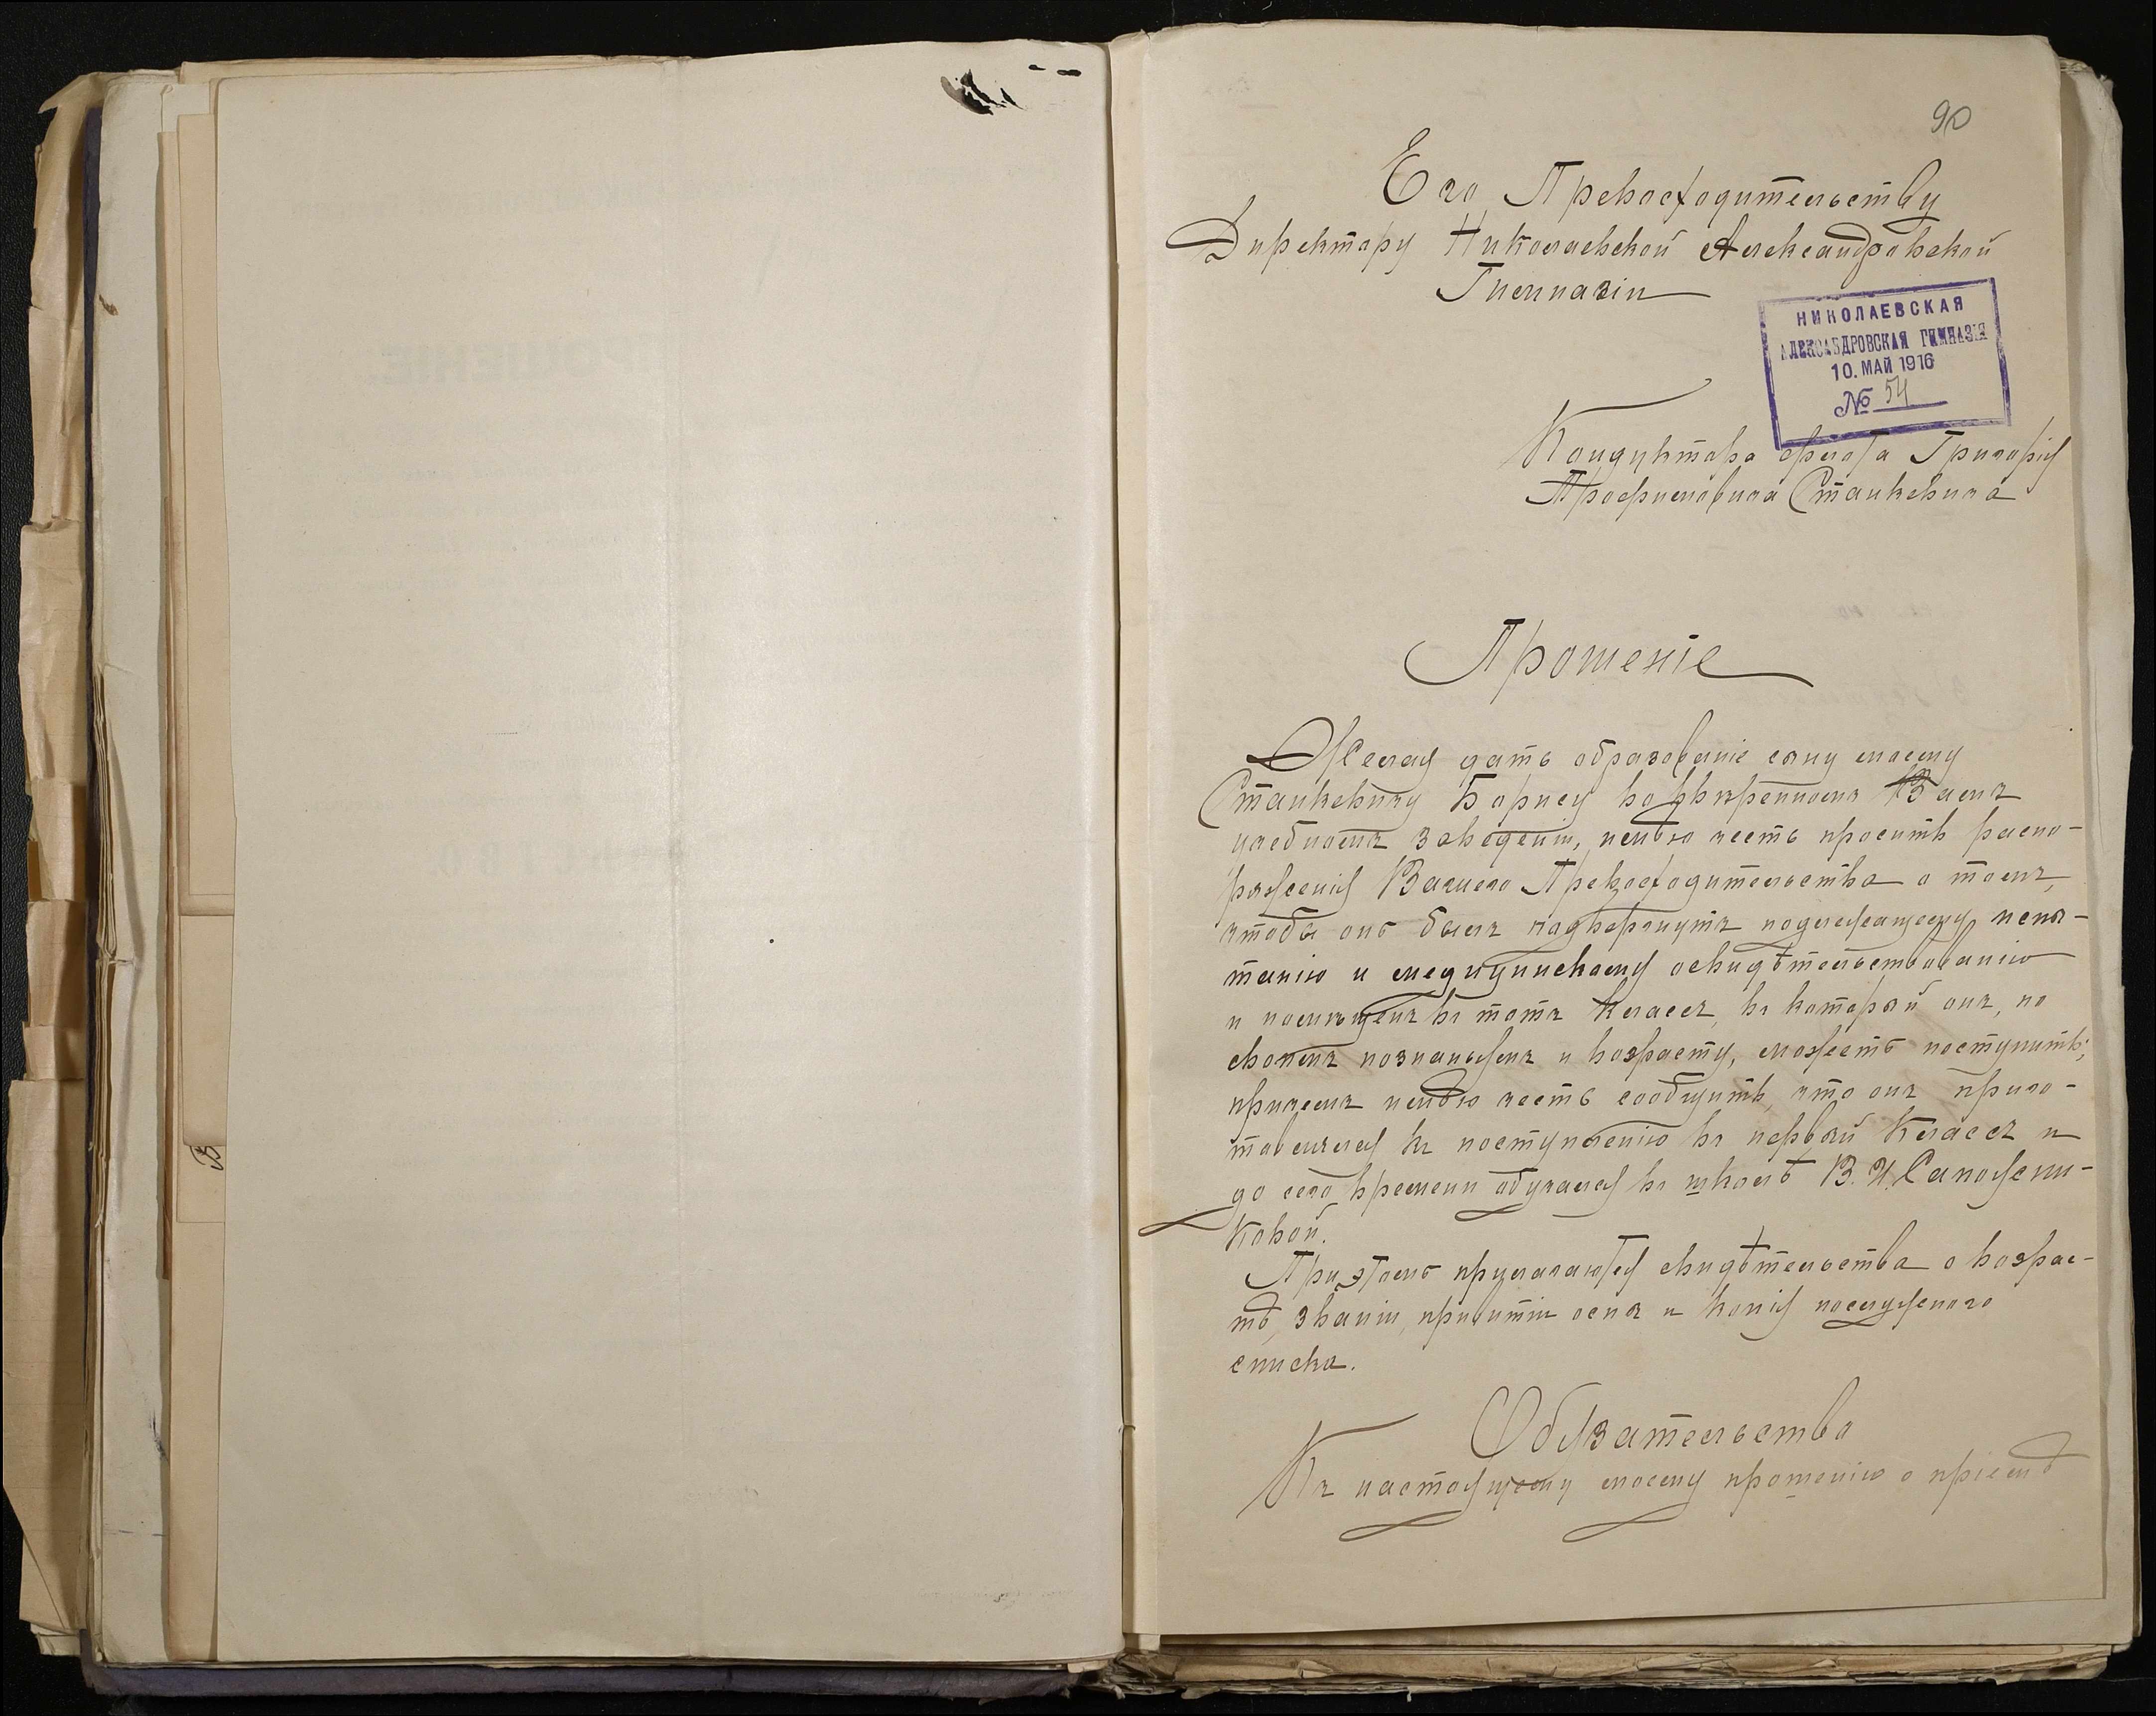 90
Его Превосходительству
Директору Николаевской Александровской
Гимназіи
НИКОЛАЕВСКАЯ
АЛЕКСАНДРОВСКАЯ ГИМНАЗІЯ
10. МАЙ 1916
№ 54
Кондуктора флота Григорія
Трофимовича Станкевича
Прошеніе
Желая дать образованіе сыну моему
Станкевичу Борису во ввѣренномъ Вамъ
учебномъ заведеніи, имѣю честь просить распо-
ряженія Вашего Превосходительства о томъ,
чтобы онъ былъ подвергнутъ подлежащему испы-
танію и медицинскому освидѣтельствованію
и помѣщенъ въ тотъ классъ, въ который онъ, по
своимъ познаніямъ и возрасту, можетъ поступить;
причемъ имѣю честь сообщить, что онъ приго-
товлялся къ поступленію въ первый классъ и
до сего времени обучался въ школѣ В. И. Сапожни-
ковой.
При этомъ прилагаются свидѣтельства о возрас-
тѣ, званіи, привитіи оспы и копія послужного
списка.
Обязательство
Къ настоящему моему прошенію о пріемѣ
В